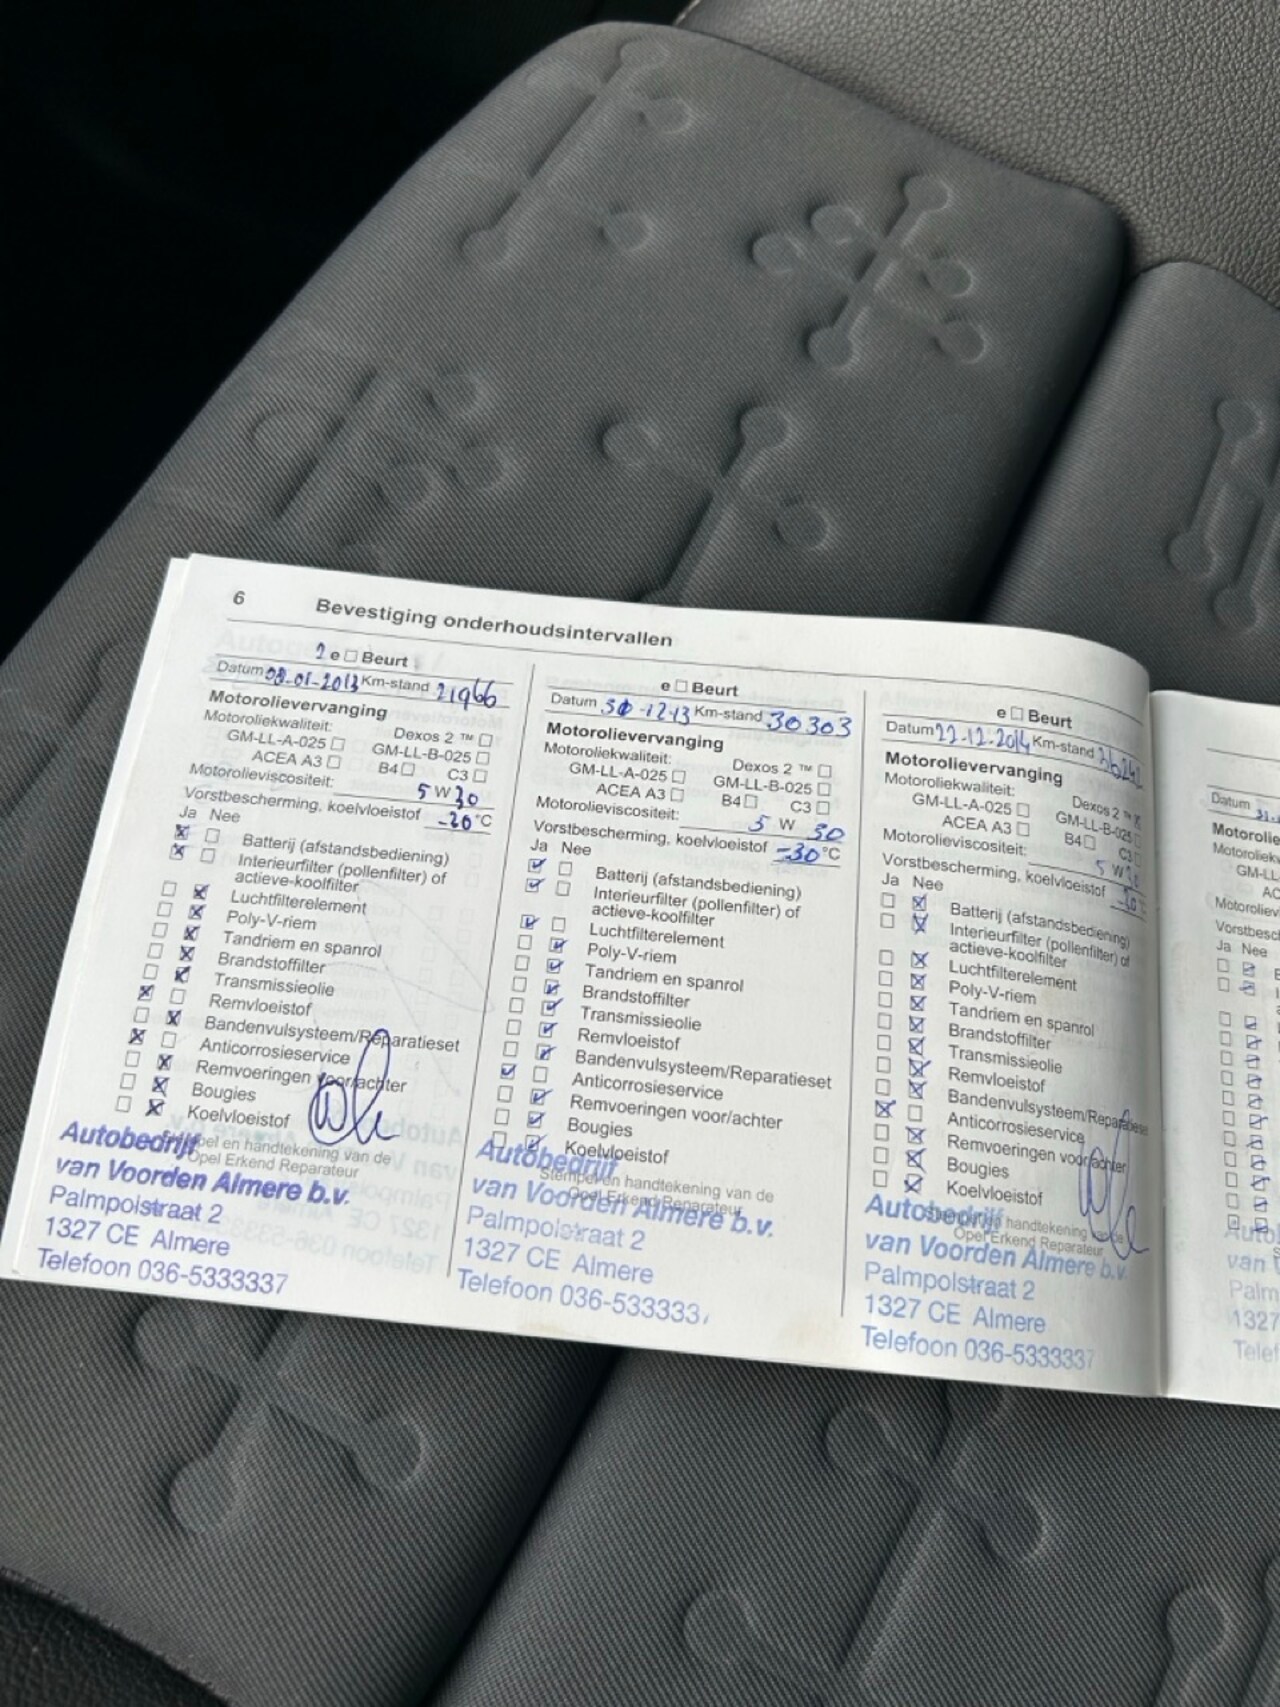 6 Bevestiging onderhoudsintervallen
2 e ☐ Beurt
Datum 08-01-2013 Km-stand 21966
Motorolievervanging
Motoroliekwaliteit: Dexos 2 ™ ☐
GM-LL-A-025 ☐ GM-LL-B-025 ☐
ACEA A3 ☐ B4 ☐ C3 ☐
Motorolieviscositeit: 5 W 30
Vorstbescherming, koelvloeistof -20 °C
Ja Nee
☒ ☐ Batterij (afstandsbediening)
☒ ☐ Interieurfilter (pollenfilter) of
actieve-koolfilter
☐ ☒ Luchtfilterelement
☐ ☒ Poly-V-riem
☐ ☒ Tandriem en spanrol
☐ ☒ Brandstoffilter
☐ ☒ Transmissieolie
☒ ☐ Remvloeistof
☐ ☒ Bandenvulsysteem/Reparatieset
☒ ☐ Anticorrosieservice
☐ ☒ Remvoeringen voor/achter
☐ ☒ Bougies
☐ ☒ Koelvloeistof
Stempel en handtekening van de
Opel Erkend Reparateur
Autobedrijf
van Voorden Almere b.v.
Palmpolstraat 2
1327 CE Almere
Telefoon 036-5333337
e ☐ Beurt
Datum 30-12-13 Km-stand 30303
Motorolievervanging
Motoroliekwaliteit: Dexos 2 ™ ☐
GM-LL-A-025 ☐ GM-LL-B-025 ☐
ACEA A3 ☐ B4 ☐ C3 ☐
Motorolieviscositeit: 5 W 30
Vorstbescherming, koelvloeistof -30 °C
Ja Nee
☑ ☐ Batterij (afstandsbediening)
☑ ☐ Interieurfilter (pollenfilter) of
actieve-koolfilter
☑ ☐ Luchtfilterelement
☐ ☑ Poly-V-riem
☐ ☑ Tandriem en spanrol
☐ ☑ Brandstoffilter
☐ ☑ Transmissieolie
☐ ☑ Remvloeistof
☐ ☑ Bandenvulsysteem/Reparatieset
☑ ☐ Anticorrosieservice
☐ ☑ Remvoeringen voor/achter
☐ ☑ Bougies
☐ ☑ Koelvloeistof
Stempel en handtekening van de
Opel Erkend Reparateur
Autobedrijf
van Voorden Almere b.v.
Palmpolstraat 2
1327 CE Almere
Telefoon 036-533333
e ☐ Beurt
Datum 22-12-2014 Km-stand
Motorolievervanging
Motoroliekwaliteit: Dexos 2 ™ ☒
GM-LL-A-025 ☐ GM-LL-B-025 ☐
ACEA A3 ☐ B4 ☐ C3 ☐
Motorolieviscositeit: 5 W 30
Vorstbescherming, koelvloeistof
Ja Nee
☐ ☒ Batterij (afstandsbediening)
☐ ☒ Interieurfilter (pollenfilter) of
actieve-koolfilter
☐ ☒ Luchtfilterelement
☐ ☒ Poly-V-riem
☐ ☒ Tandriem en spanrol
☐ ☒ Brandstoffilter
☐ ☒ Transmissieolie
☐ ☒ Remvloeistof
☐ ☒ Bandenvulsysteem/Reparatieset
☒ ☐ Anticorrosieservice
☐ ☒ Remvoeringen voor/achter
☐ ☒ Bougies
☐ ☒ Koelvloeistof
Stempel en handtekening van de
Opel Erkend Reparateur
Autobedrijf
van Voorden Almere b.v.
Palmpolstraat 2
1327 CE Almere
Telefoon 036-5333337
Datum 31
Motorolie
Motoroliek
GM-LL
AC
Motoroliev
Vorstbesch
Ja Nee
Auto
van
Palm
1327
Telef